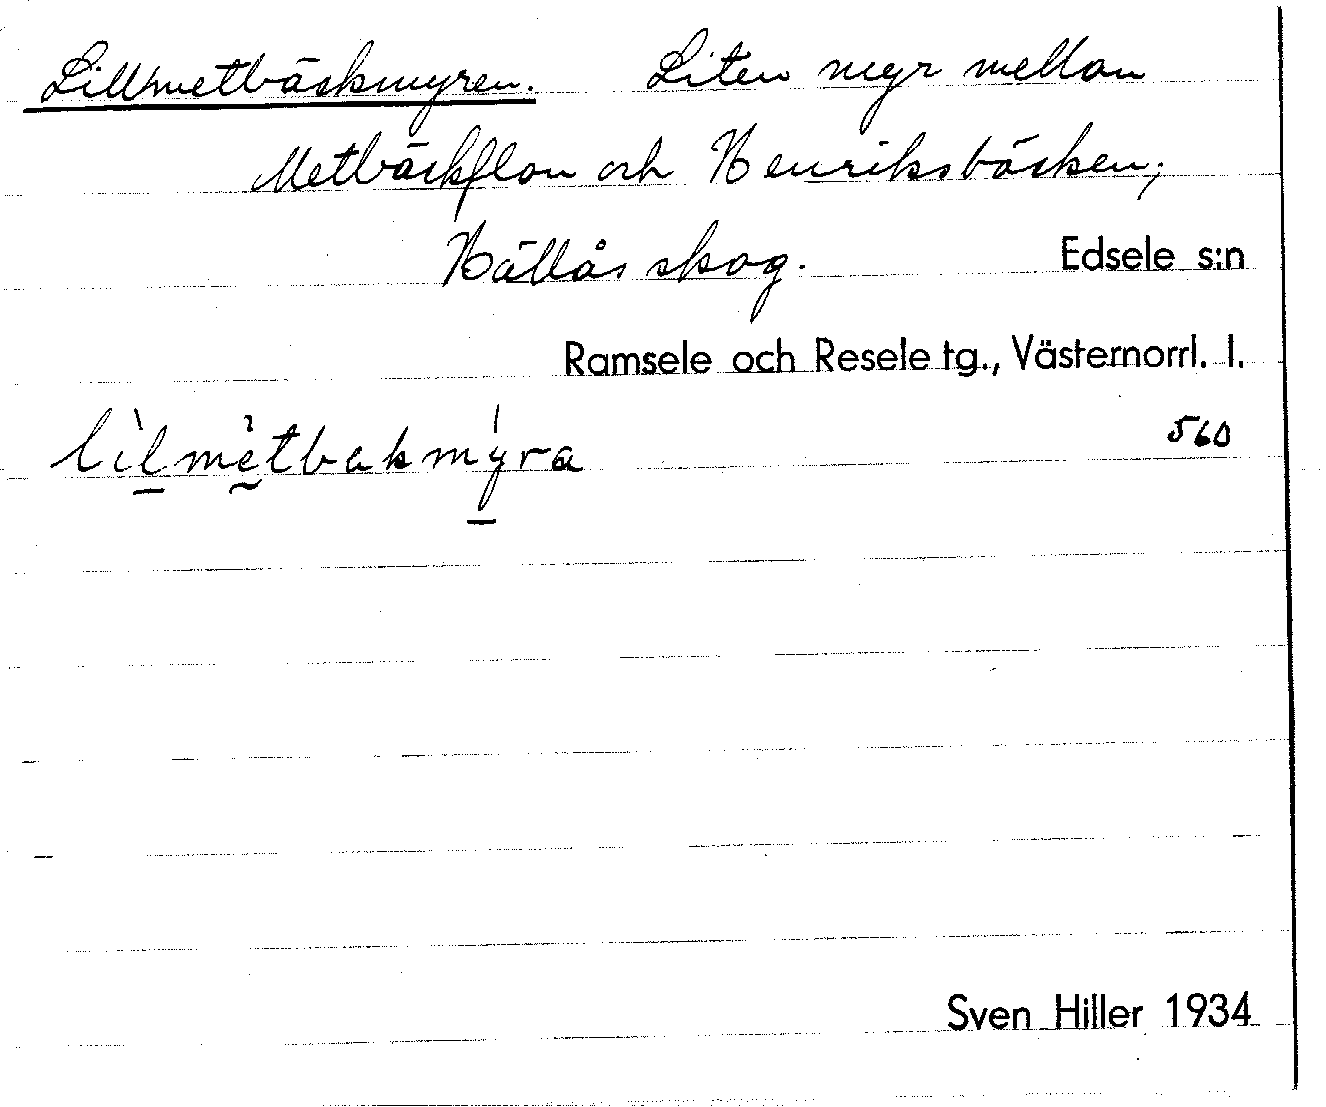 Lillmetbäckmyren. Liten myr mellan
Metbäckflon och Henriksbäcken,
Hällås skog. Edsele s:n
Ramsele och Resele tg., Västernorrl. l.
lìlmètbakmýra 560
Sven Hiller 1934